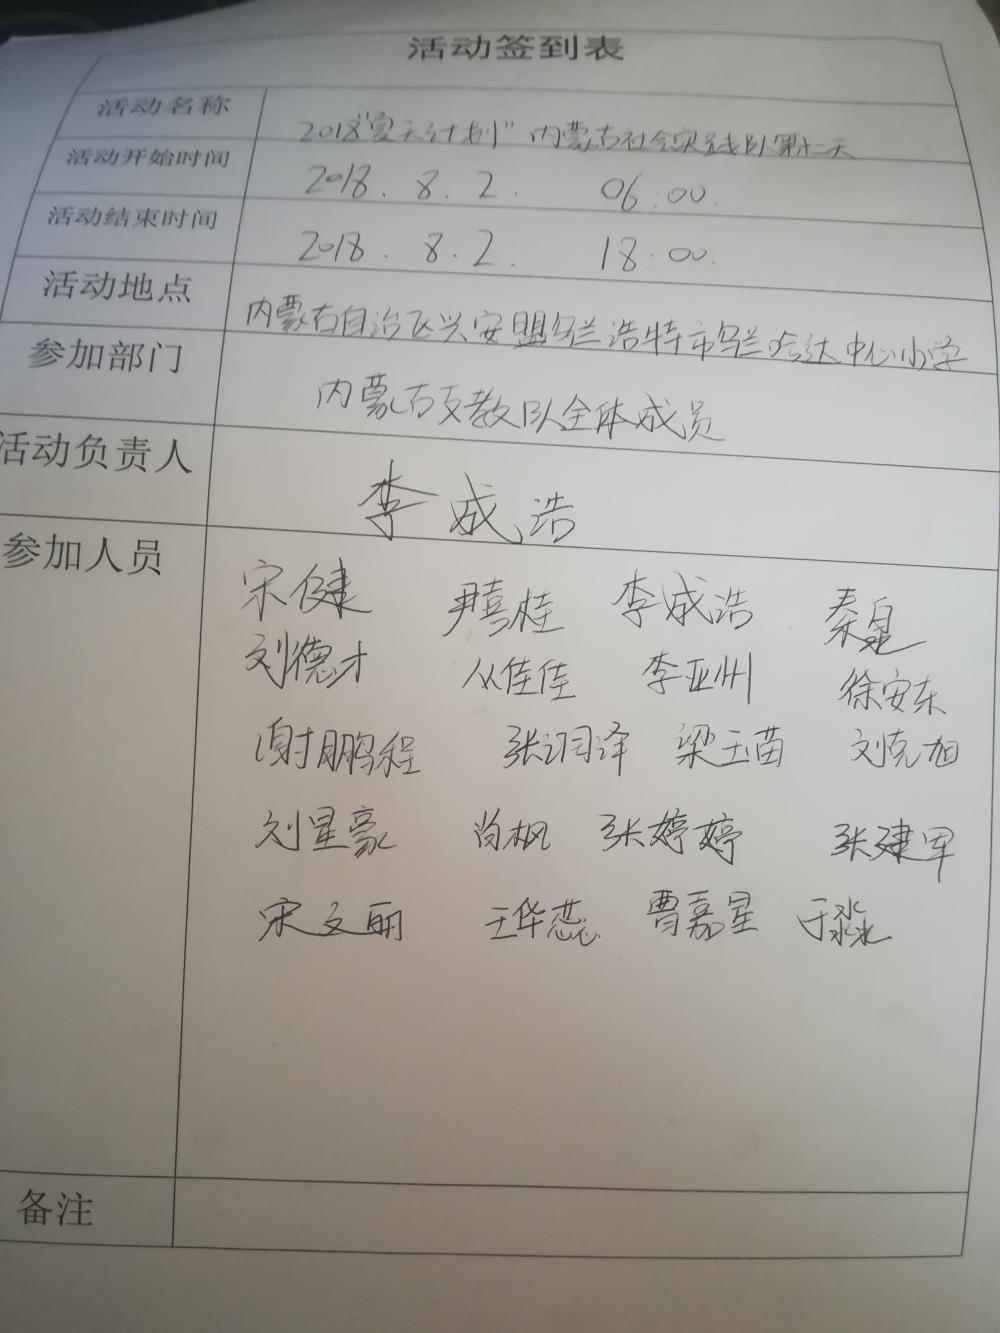 活动签到表
活动名称 2018"夏天计划"内蒙古社会实践队第十二天
活动开始时间 2018.8.2. 06:00
活动结束时间 2018.8.2. 18:00.
活动地点 内蒙古自治区兴安盟乌兰浩特市乌兰哈达中心小学
参加部门 内蒙古支教队全体成员
活动负责人 李成浩
参加人员 宋健 尹喜桂 李成浩
刘德才 从佳佳 李亚州 徐安东
谢鹏程 张润泽 梁玉苗 刘克旭
刘星豪 尚枫 张婷婷 张建军
宋文丽 王华蕊 曹嘉星 于淼
备注